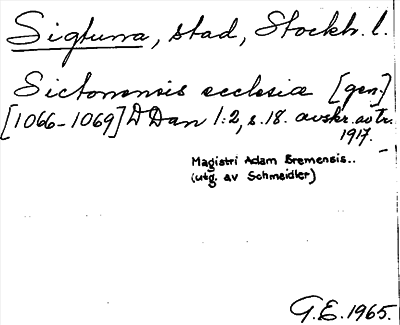 Sigtuna, stad, Stockh. l.
Sictonensis ecclesiæ [gen.]
[1066-1069] D Dan 1:2, s.18. avskr. av tr. 1917.
Magistri Adam Bremensis..
(utg. av Schmeidler)
G.E. 1965.